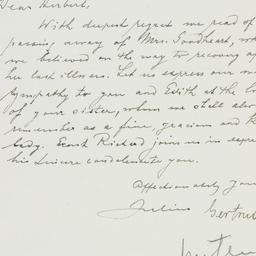 Dear Herbert,
With deepest regret we read of
passing away of Mrs. Goodheart, wh
we believed on the way to recovery a
her last illness. Let us express our
sympathy to you and Edith at the lo
of your sister, whom we shall alw
remember as a fine, gracious and
lady. Richard joins us in expre
his sincere condolences to you.
Affectionately You
Julius Gertru